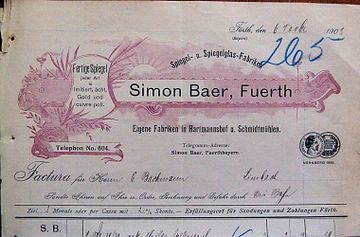 Fürth, den 6 1903
(Bayern)
265
Spiegel- u. Spiegelglas-Fabriken
Fertige Spiegel
jeder Art
in
imitiert, ächt
Gold und
cuivre poli.
Simon Baer, Fuerth
Eigene Fabriken in Hartmannshof u. Schmidtmühlen.
Telephon No. 604.
Telegramm-Adresse:
Simon Baer, Fuerthbayern.
NÜRNBERG 1882.
Factura für Herrn E Bachmann
Sandte Ihnen auf Ihre w. Ordre, Rechnung und Gefahr durch
Ziel Monate oder per Cassa mit % Skonto. — Erfüllungsort für Sendungen und Zahlungen Fürth.
S. B.